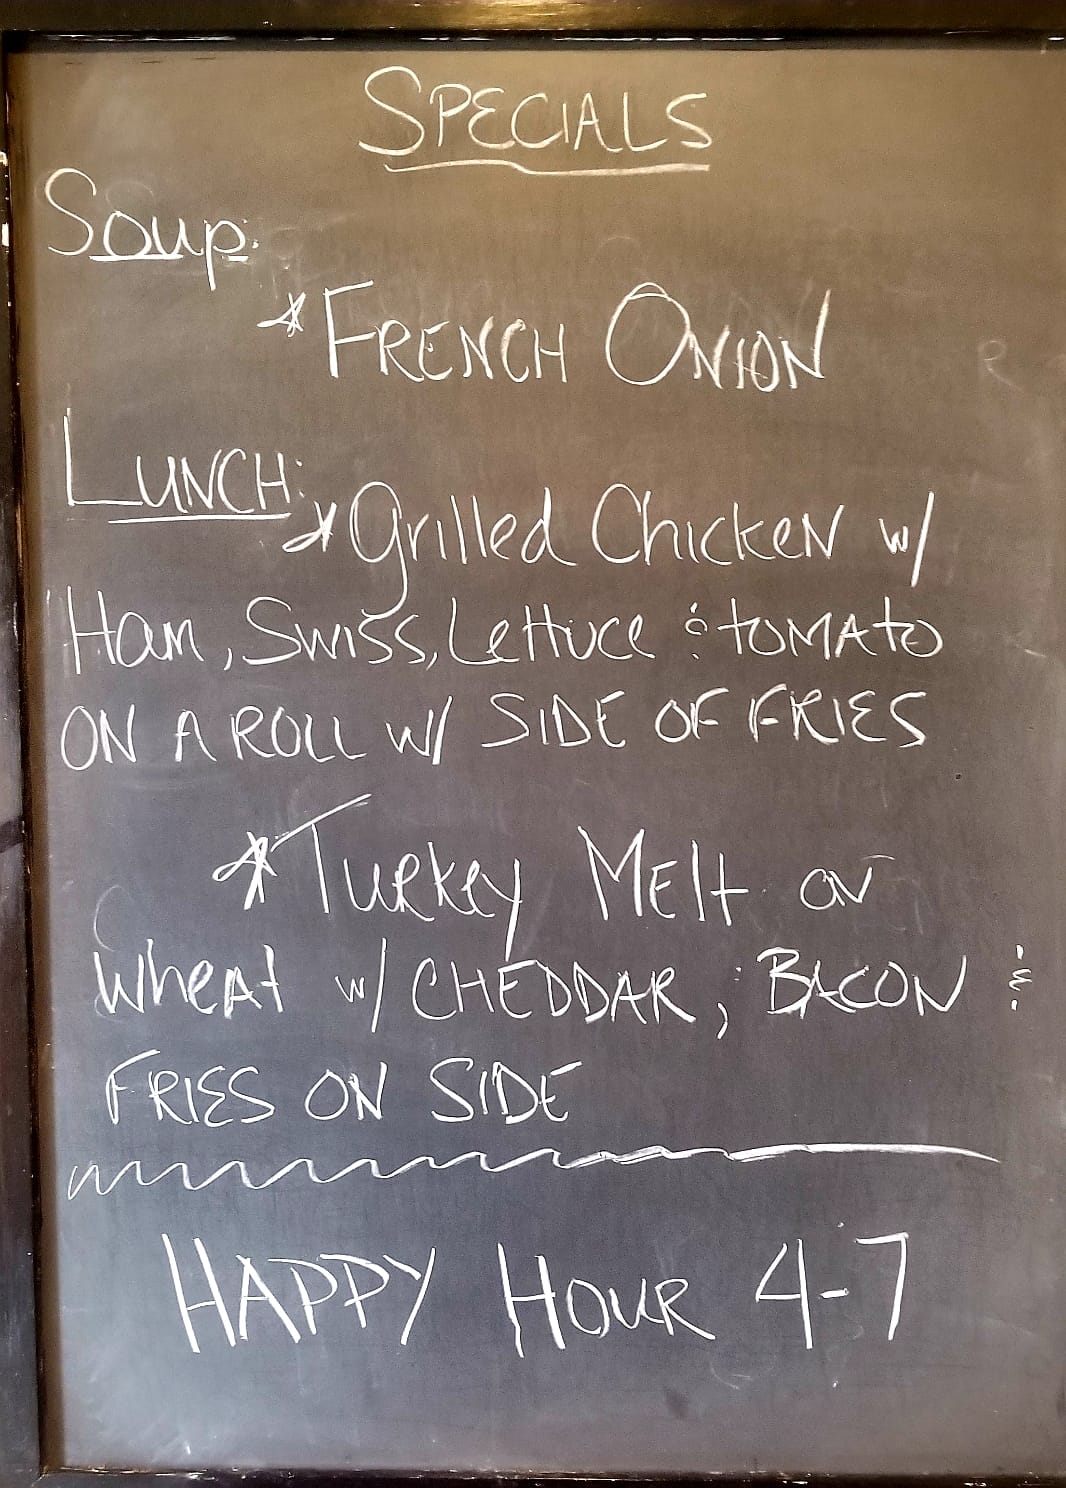 SPECIALS
Soup:
*FRENCH ONION
LUNCH:
*Grilled Chicken w/
Ham, Swiss, Lettuce & tomato
ON A ROLL w/ SIDE OF FRIES
*Turkey Melt on
Wheat w/ CHEDDAR, BACON &
FRIES ON SIDE
HAPPY HOUR 4-7